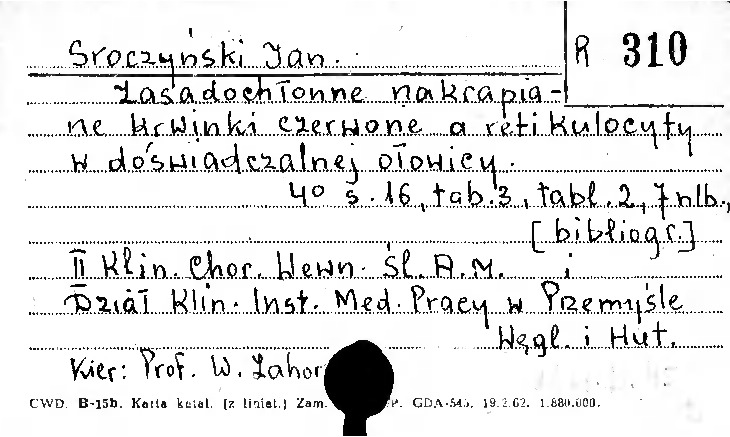 Sroczyński Jan.
R 310
Zasadochłonne nakrapia-
ne krwinki czerwone a retikulocyty
w doświadczalnej ołowicy.
4° s.16, tab.3, tabl.2, 7 nlb.,
[bibliogr.]
II Klin. Chor. Wewn. Śl. A.M. i
Dział Klin. Inst. Med. Pracy w Przemyśle
Węgl. i Hut.
Kier: Prof. W. Zahor
CWD. B-15b. Karta katal. (z liniat.) Zam. P. GDA-545. 19.2.62. 1.880.000.